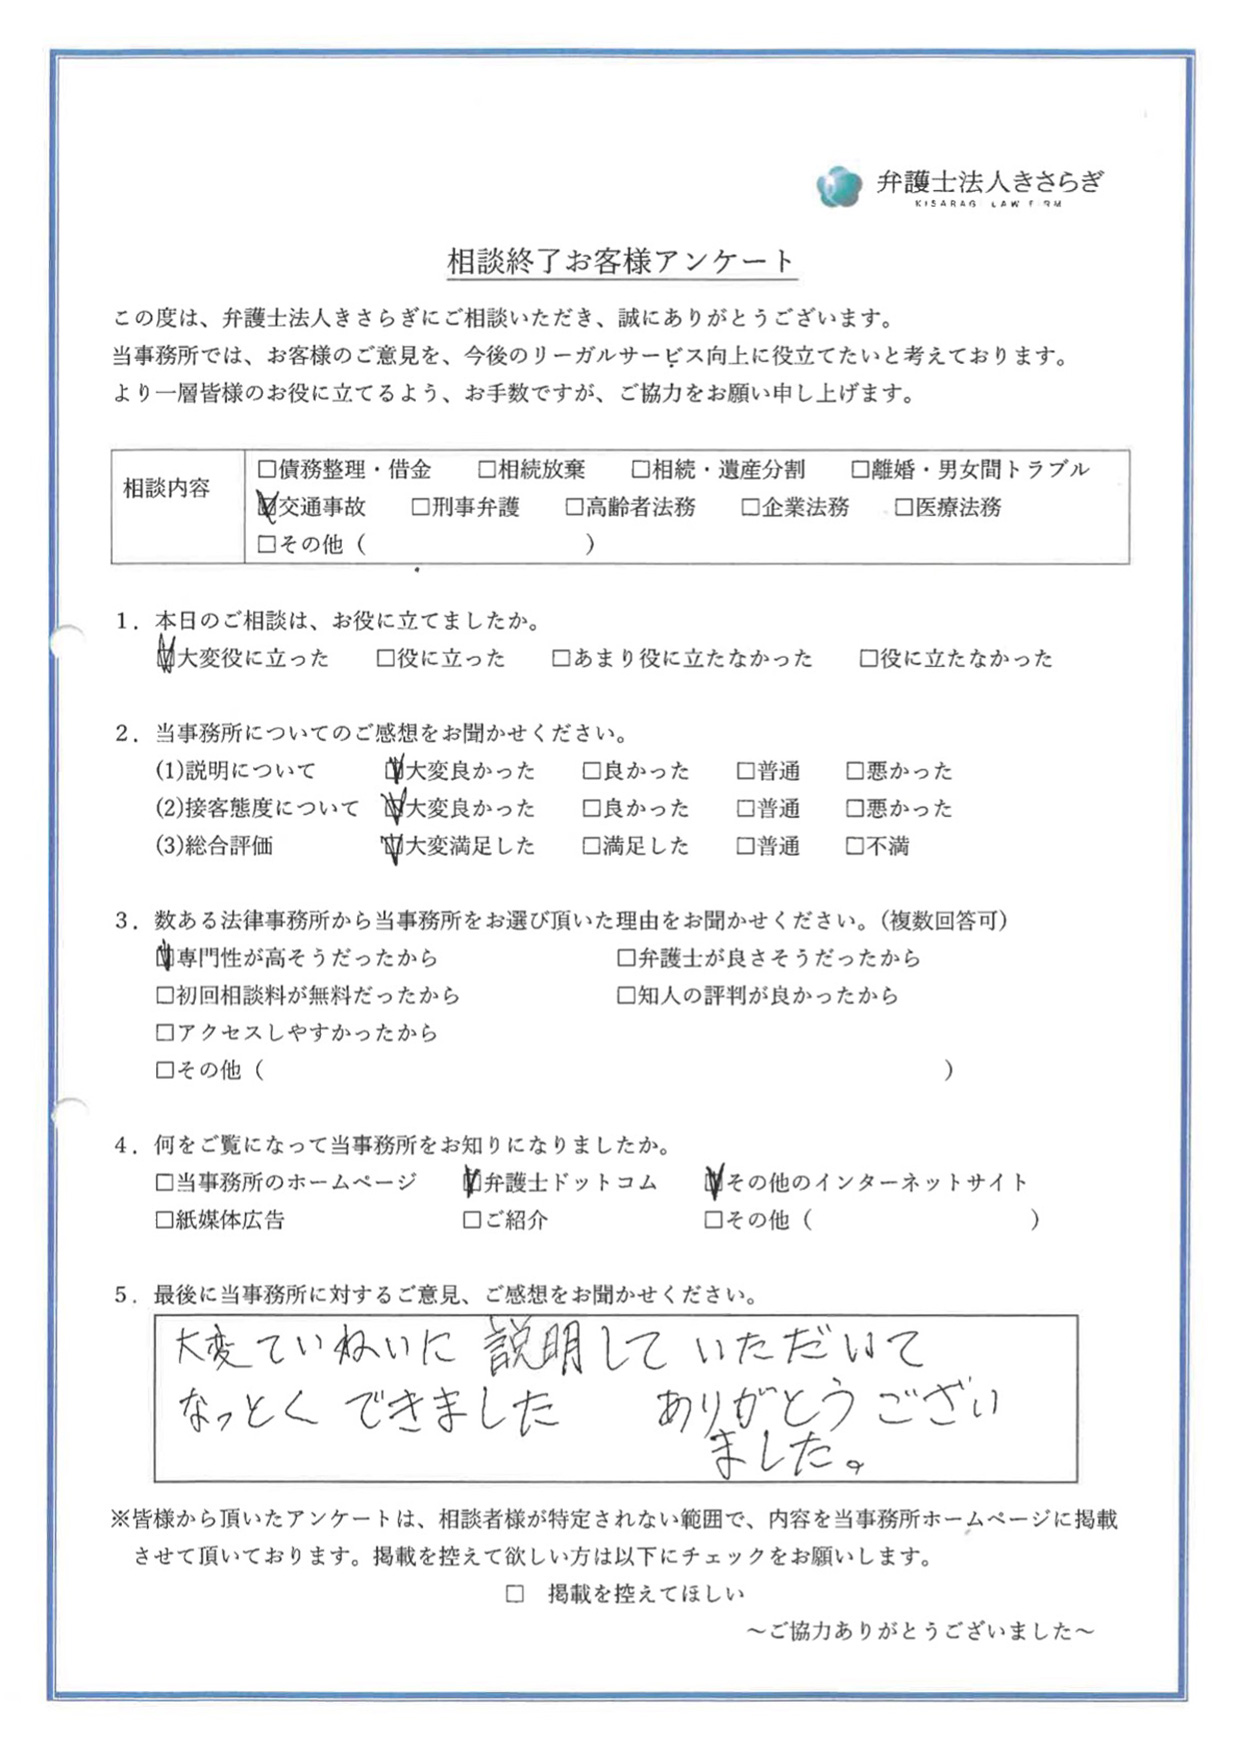 弁護士法人きさらぎ
KISARAGI LAW FIRM
相談終了お客様アンケート
この度は、弁護士法人きさらぎにご相談いただき、誠にありがとうございます。
当事務所では、お客様のご意見を、今後のリーガルサービス向上に役立てたいと考えております。
より一層皆様のお役に立てるよう、お手数ですが、ご協力をお願い申し上げます。
相談内容
□債務整理・借金 □相続放棄 □相続・遺産分割 □離婚・男女間トラブル
☑交通事故 □刑事弁護 □高齢者法務 □企業法務 □医療法務
□その他（ ）
1．本日のご相談は、お役に立てましたか。
☑大変役に立った □役に立った □あまり役に立たなかった □役に立たなかった
2．当事務所についてのご感想をお聞かせください。
(1)説明について ☑大変良かった □良かった □普通 □悪かった
(2)接客態度について ☑大変良かった □良かった □普通 □悪かった
(3)総合評価 ☑大変満足した □満足した □普通 □不満
3．数ある法律事務所から当事務所をお選び頂いた理由をお聞かせください。(複数回答可)
☑専門性が高そうだったから □弁護士が良さそうだったから
□初回相談料が無料だったから □知人の評判が良かったから
□アクセスしやすかったから
□その他（ ）
4．何をご覧になって当事務所をお知りになりましたか。
□当事務所のホームページ ☑弁護士ドットコム ☑その他のインターネットサイト
□紙媒体広告 □ご紹介 □その他（ ）
5．最後に当事務所に対するご意見、ご感想をお聞かせください。
大変ていねいに 説明して いただいて
なっとく できました ありがとうござい
ました。
※皆様から頂いたアンケートは、相談者様が特定されない範囲で、内容を当事務所ホームページに掲載
させて頂いております。掲載を控えて欲しい方は以下にチェックをお願いします。
□ 掲載を控えてほしい
～ご協力ありがとうございました～